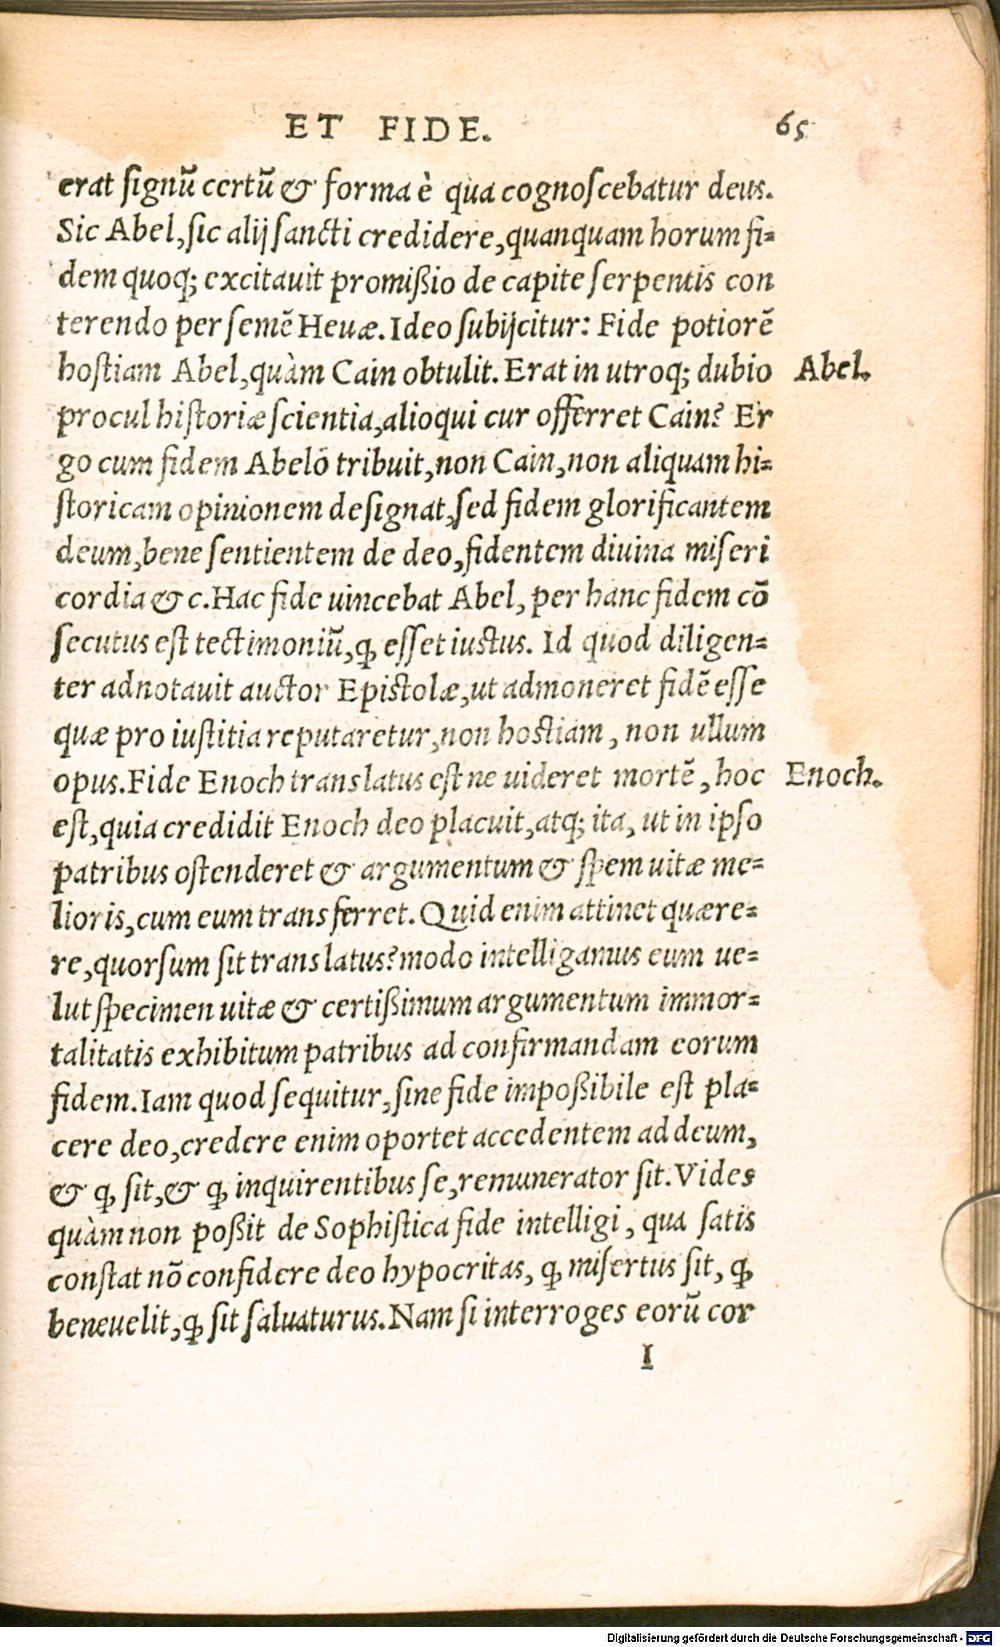 ET FIDE. 65
erat signũ certũ & forma è qua cognoscebatur deus.
Sic Abel, sic alij sancti credidere, quanquam horum fi-
dem quoq; excitauit promißio de capite serpentis con
terendo per semẽ Heuæ. Ideo subijcitur: Fide potiorẽ
hostiam Abel, quàm Cain obtulit. Erat in utroq; dubio
Abel.
procul historiæ scientia, alioqui cur offerret Cain? Er
go cum fidem Abelo tribuit, non Cain, non aliquam hi-
storicam opinionem designat, sed fidem glorificantem
deum, bene sentientem de deo, fidentem diuina miseri
cordia & c. Hac fide uincebat Abel, per hanc fidem cõ
secutus est tectimoniũ, ꝙ esset iustus. Id quod diligen-
ter adnotauit auctor Epistolæ, ut admoneret fidẽ esse
quæ pro iustitia reputaretur, non hostiam, non ullum
opus. Fide Enoch translatus est ne uideret mortẽ, hoc
Enoch.
est, quia credidit Enoch deo placuit, atq; ita, ut in ipso
patribus ostenderet & argumentum & spem uitæ me-
lioris, cum eum transferret. Quid enim attinet quære-
re, quorsum sit translatus? modo intelligamus eum ue-
lut specimen uitæ & certißimum argumentum immor-
talitatis exhibitum patribus ad confirmandam eorum
fidem. Iam quod sequitur, sine fide impoßibile est pla-
cere deo, credere enim oportet accedentem ad deum,
& ꝙ sit, & ꝙ inquirentibus se, remunerator sit. Vides
quàm non poßit de Sophistica fide intelligi, qua satis
constat nõ confidere deo hypocritas, ꝙ misertus sit, ꝙ
beneuelit, ꝙ sit saluaturus. Nam si interroges eorũ cor
I
Digitalisierung gefördert durch die Deutsche Forschungsgemeinschaft - DFG